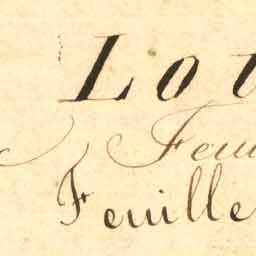 Lot
Feui
Feuille